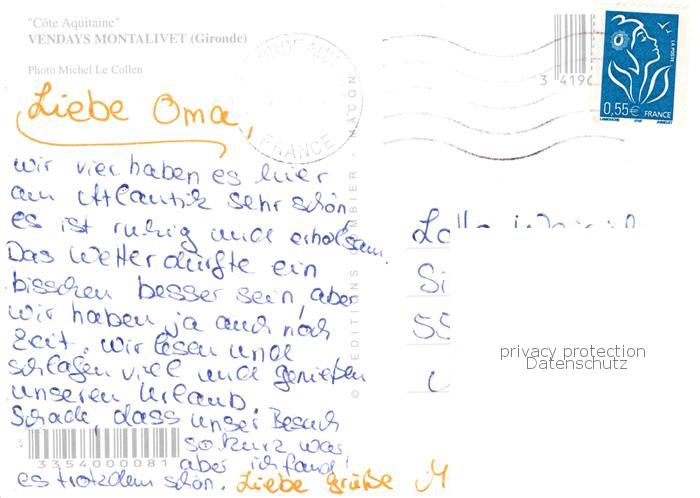 "Côte Aquitaine"
VENDAYS MONTALIVET (Gironde)
Photo Michel Le Collen
3 4190
LA POSTE
0,55€ FRANCE
FRANCE
Liebe Oma,
wir vier haben es hier
am Atlantik sehr schön
es ist ruhig und erholsam.
Das Wetter dürfte ein
bisschen besser sein, aber
wir haben ja auch noch
Zeit. Wir lesen und
schlafen viel und genießen
unseren Urlaub.
Schade, dass unser Besuch
so kurz war
aber ich fand
es trotzdem schön. Liebe Grüße
3354000081
MÂCON
ÉDITIONS
Si
55
privacy protection
Datenschutz